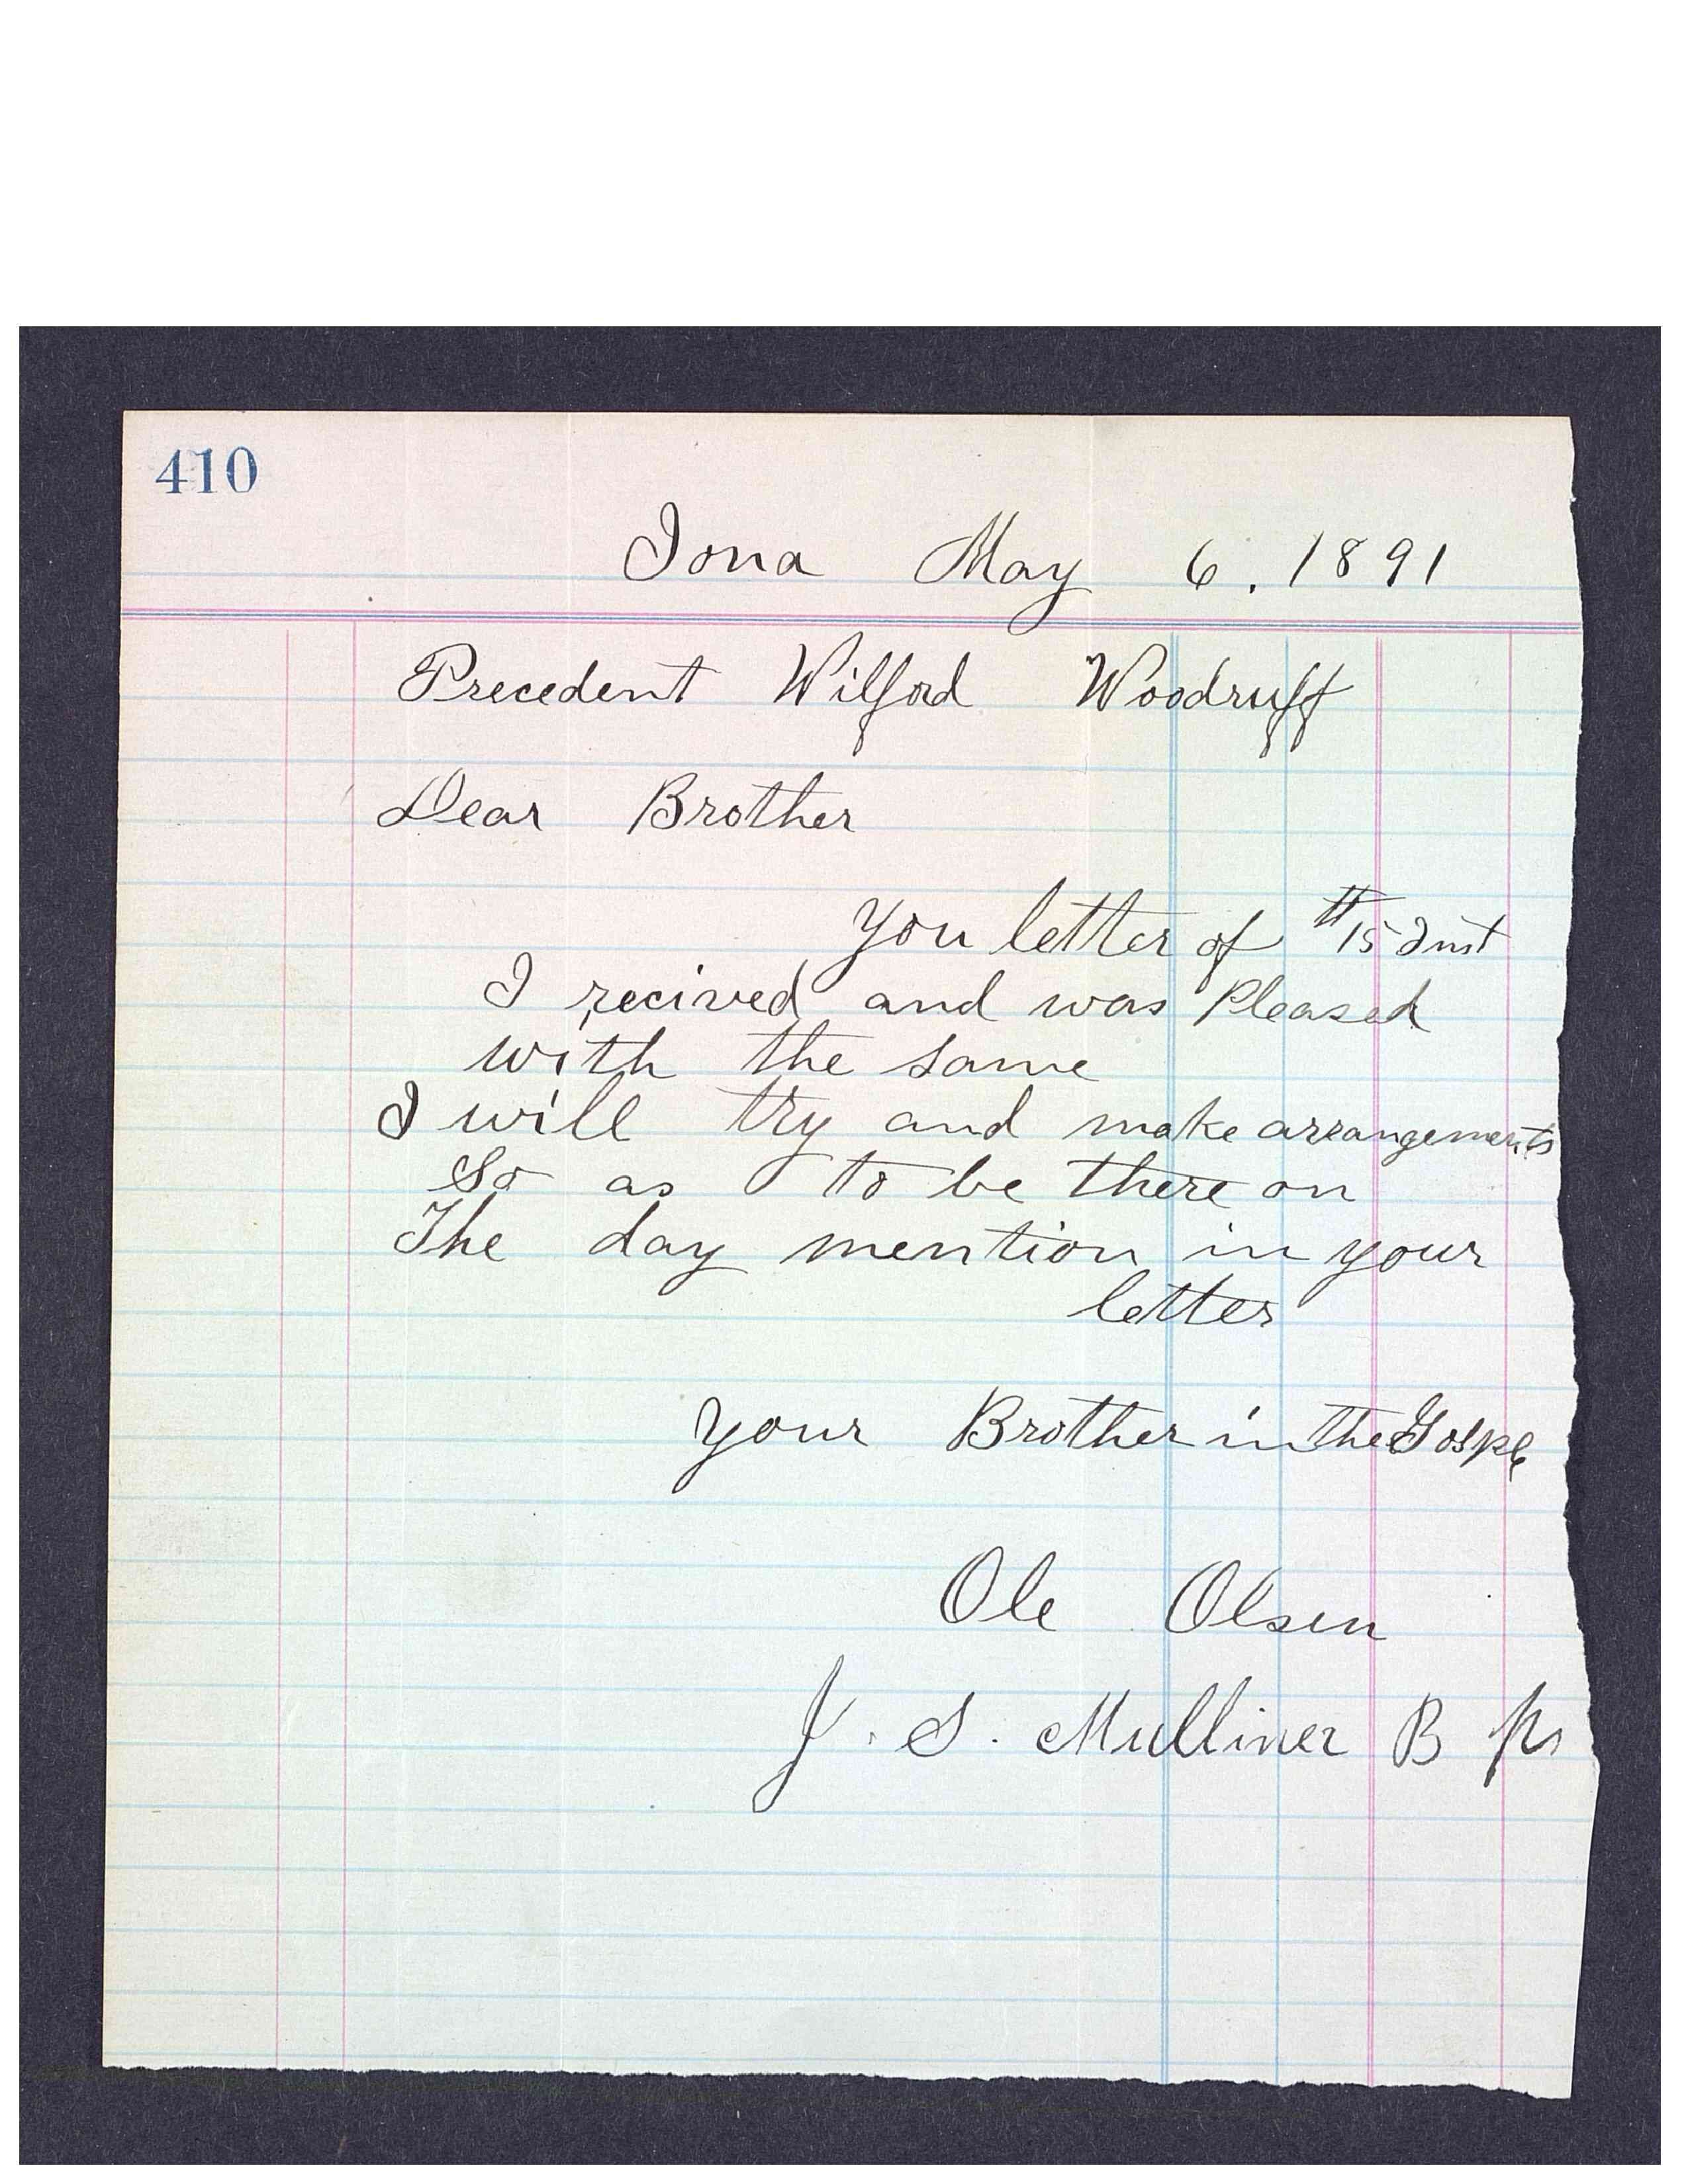 410
Iona May 6. 1891
Precedent Wilford Woodruff
Dear Brother
you letter of 15 Inst
I recived and was Pleased
with the same
I will try and make arrangements
So as to be there on
The day mention in your
letter
your Brother in the Gospel
Ole Olsen
J. S. Mulliner B